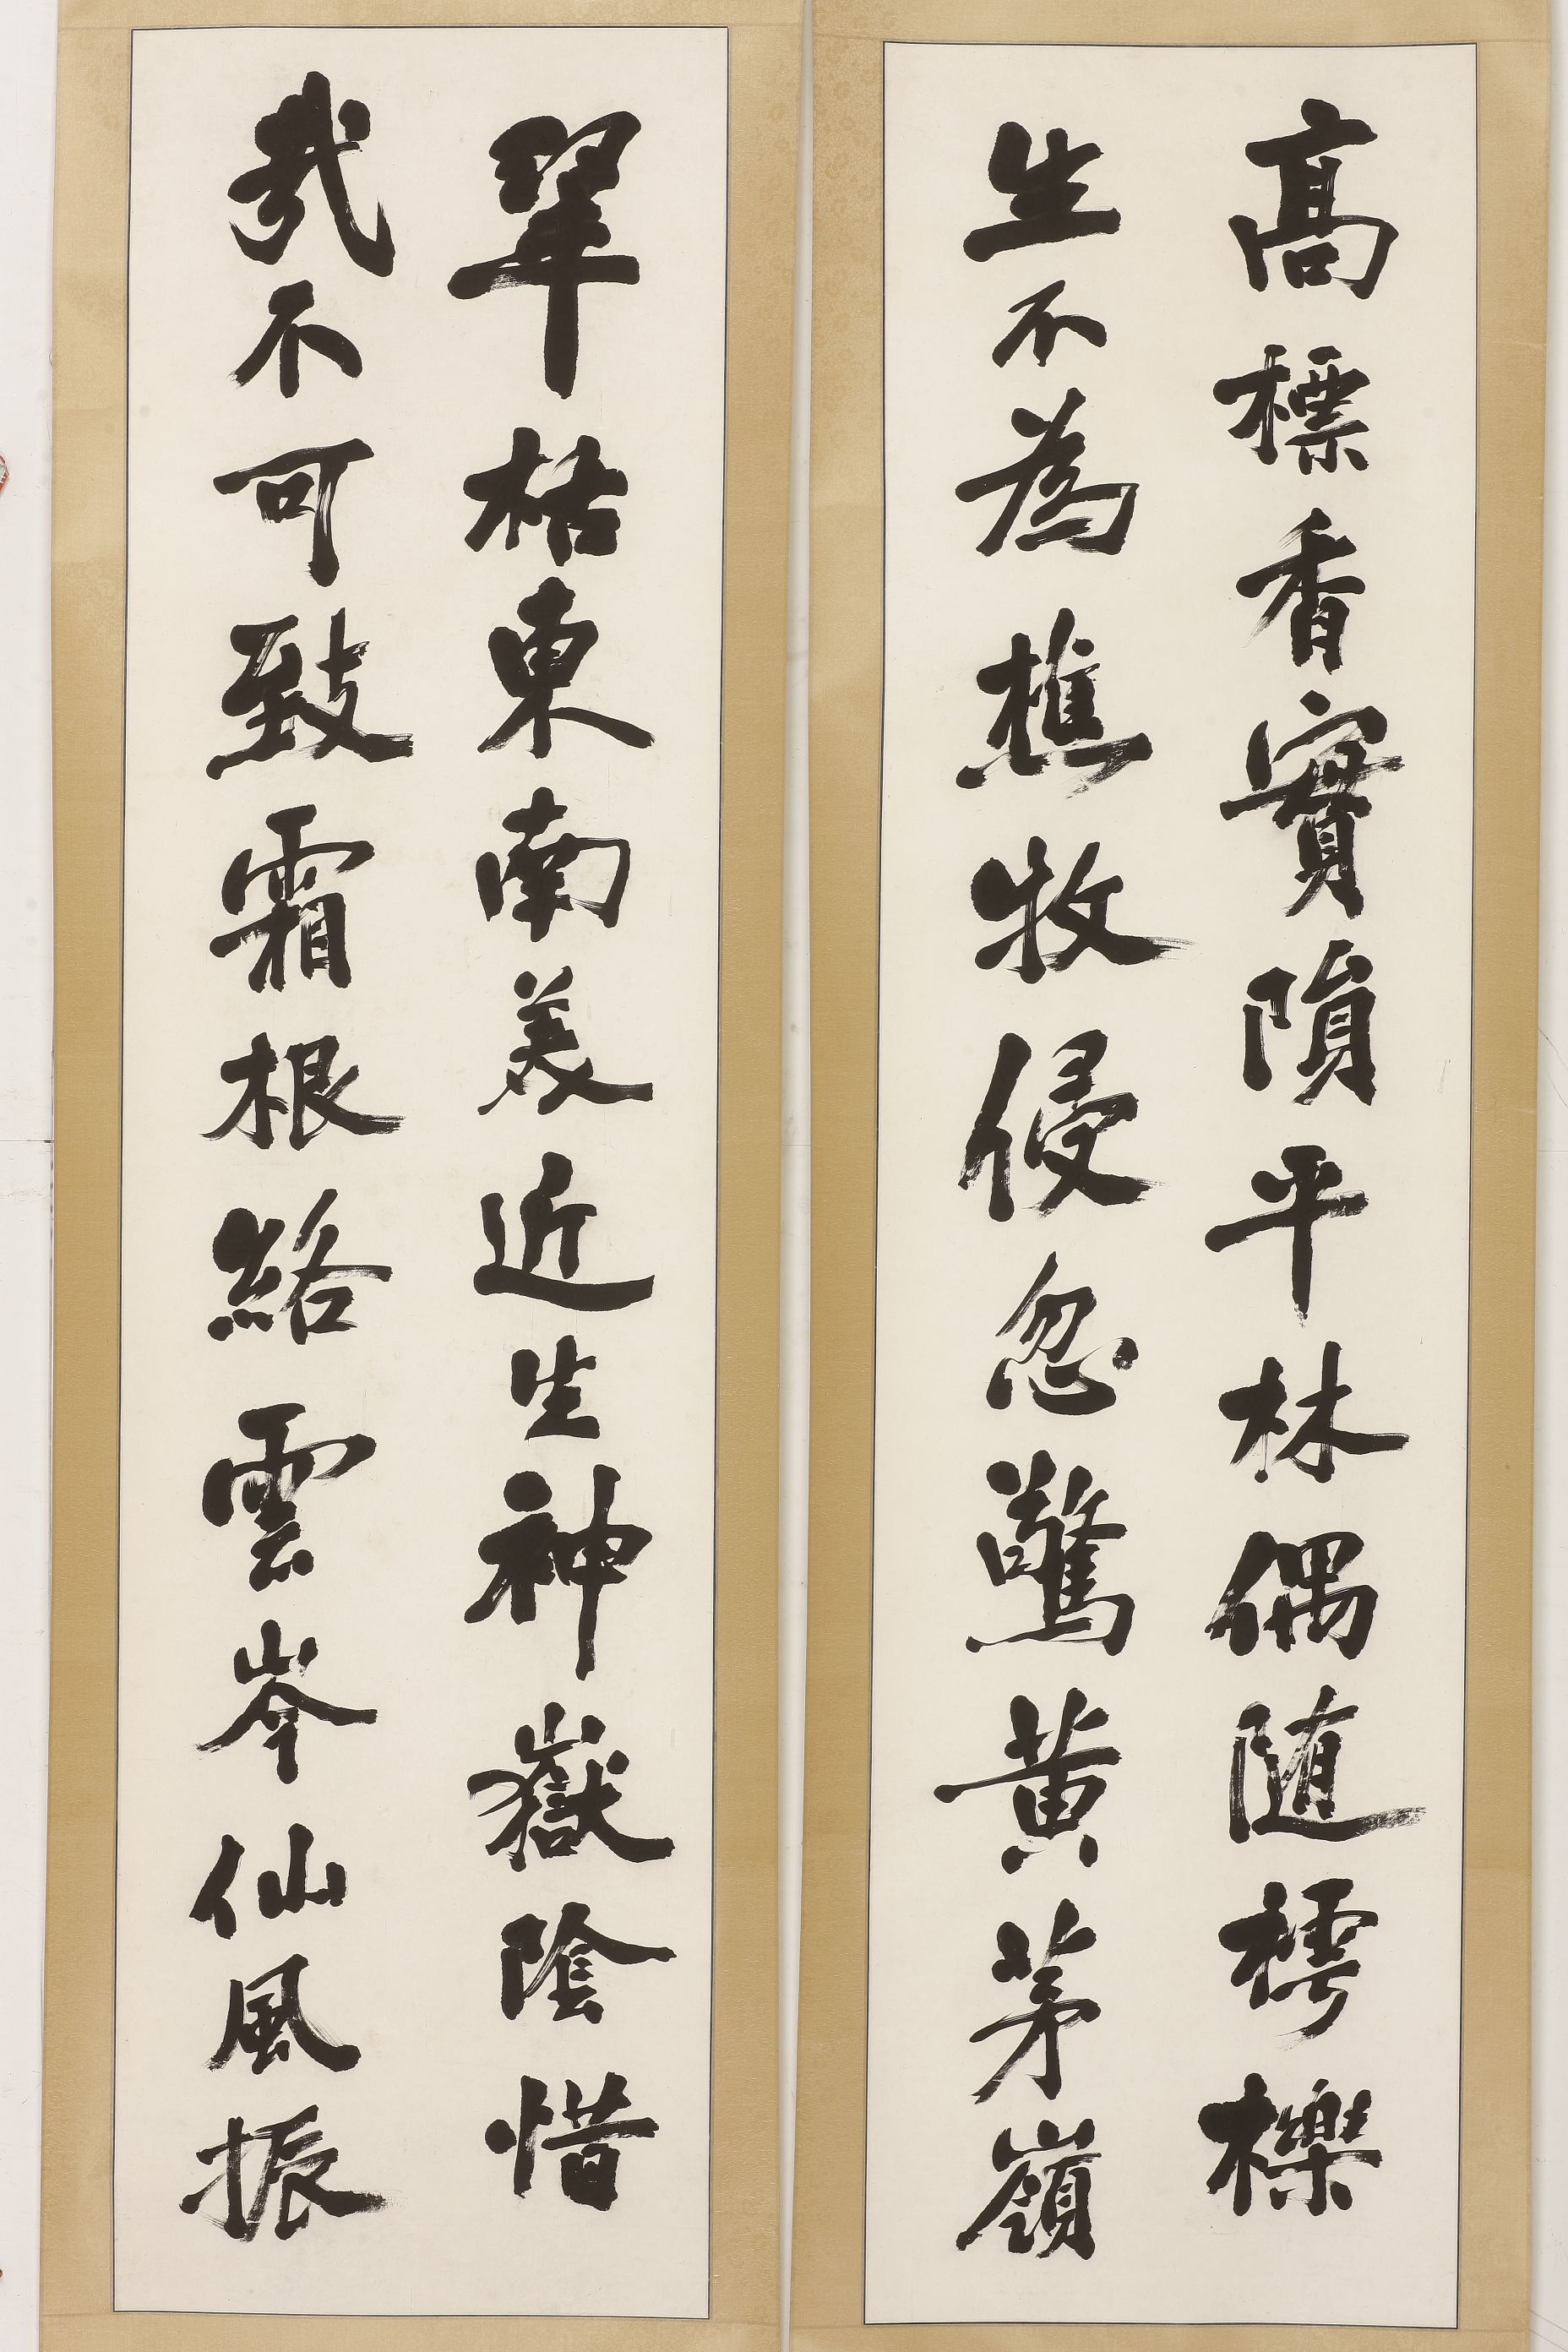 翠栝東南美近生神嶽陰惜
哉不可致霜根絡雲岑仙風振
高標香實隕平林偶随樗櫟
生不為樵牧侵忽驚黄茅嶺